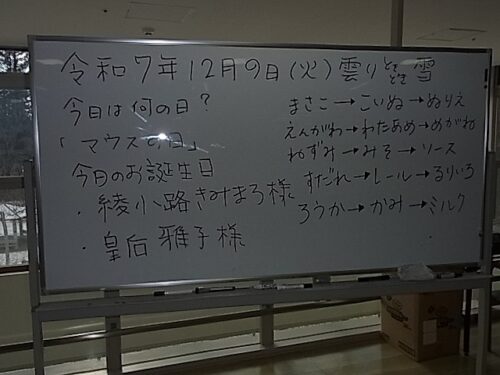 令和7年12月9日(火)雲りときどき雪
今日は何の日?
「マウスの日」
今日のお誕生日
・綾小路きみまろ様
・皇后 雅子様
まさこ→こいぬ→ぬりえ
えんがわ→わたあめ→めがね
ねずみ→みそ→ソース
すだれ→レール→るりいろ
ろうか→かみ→ミルク